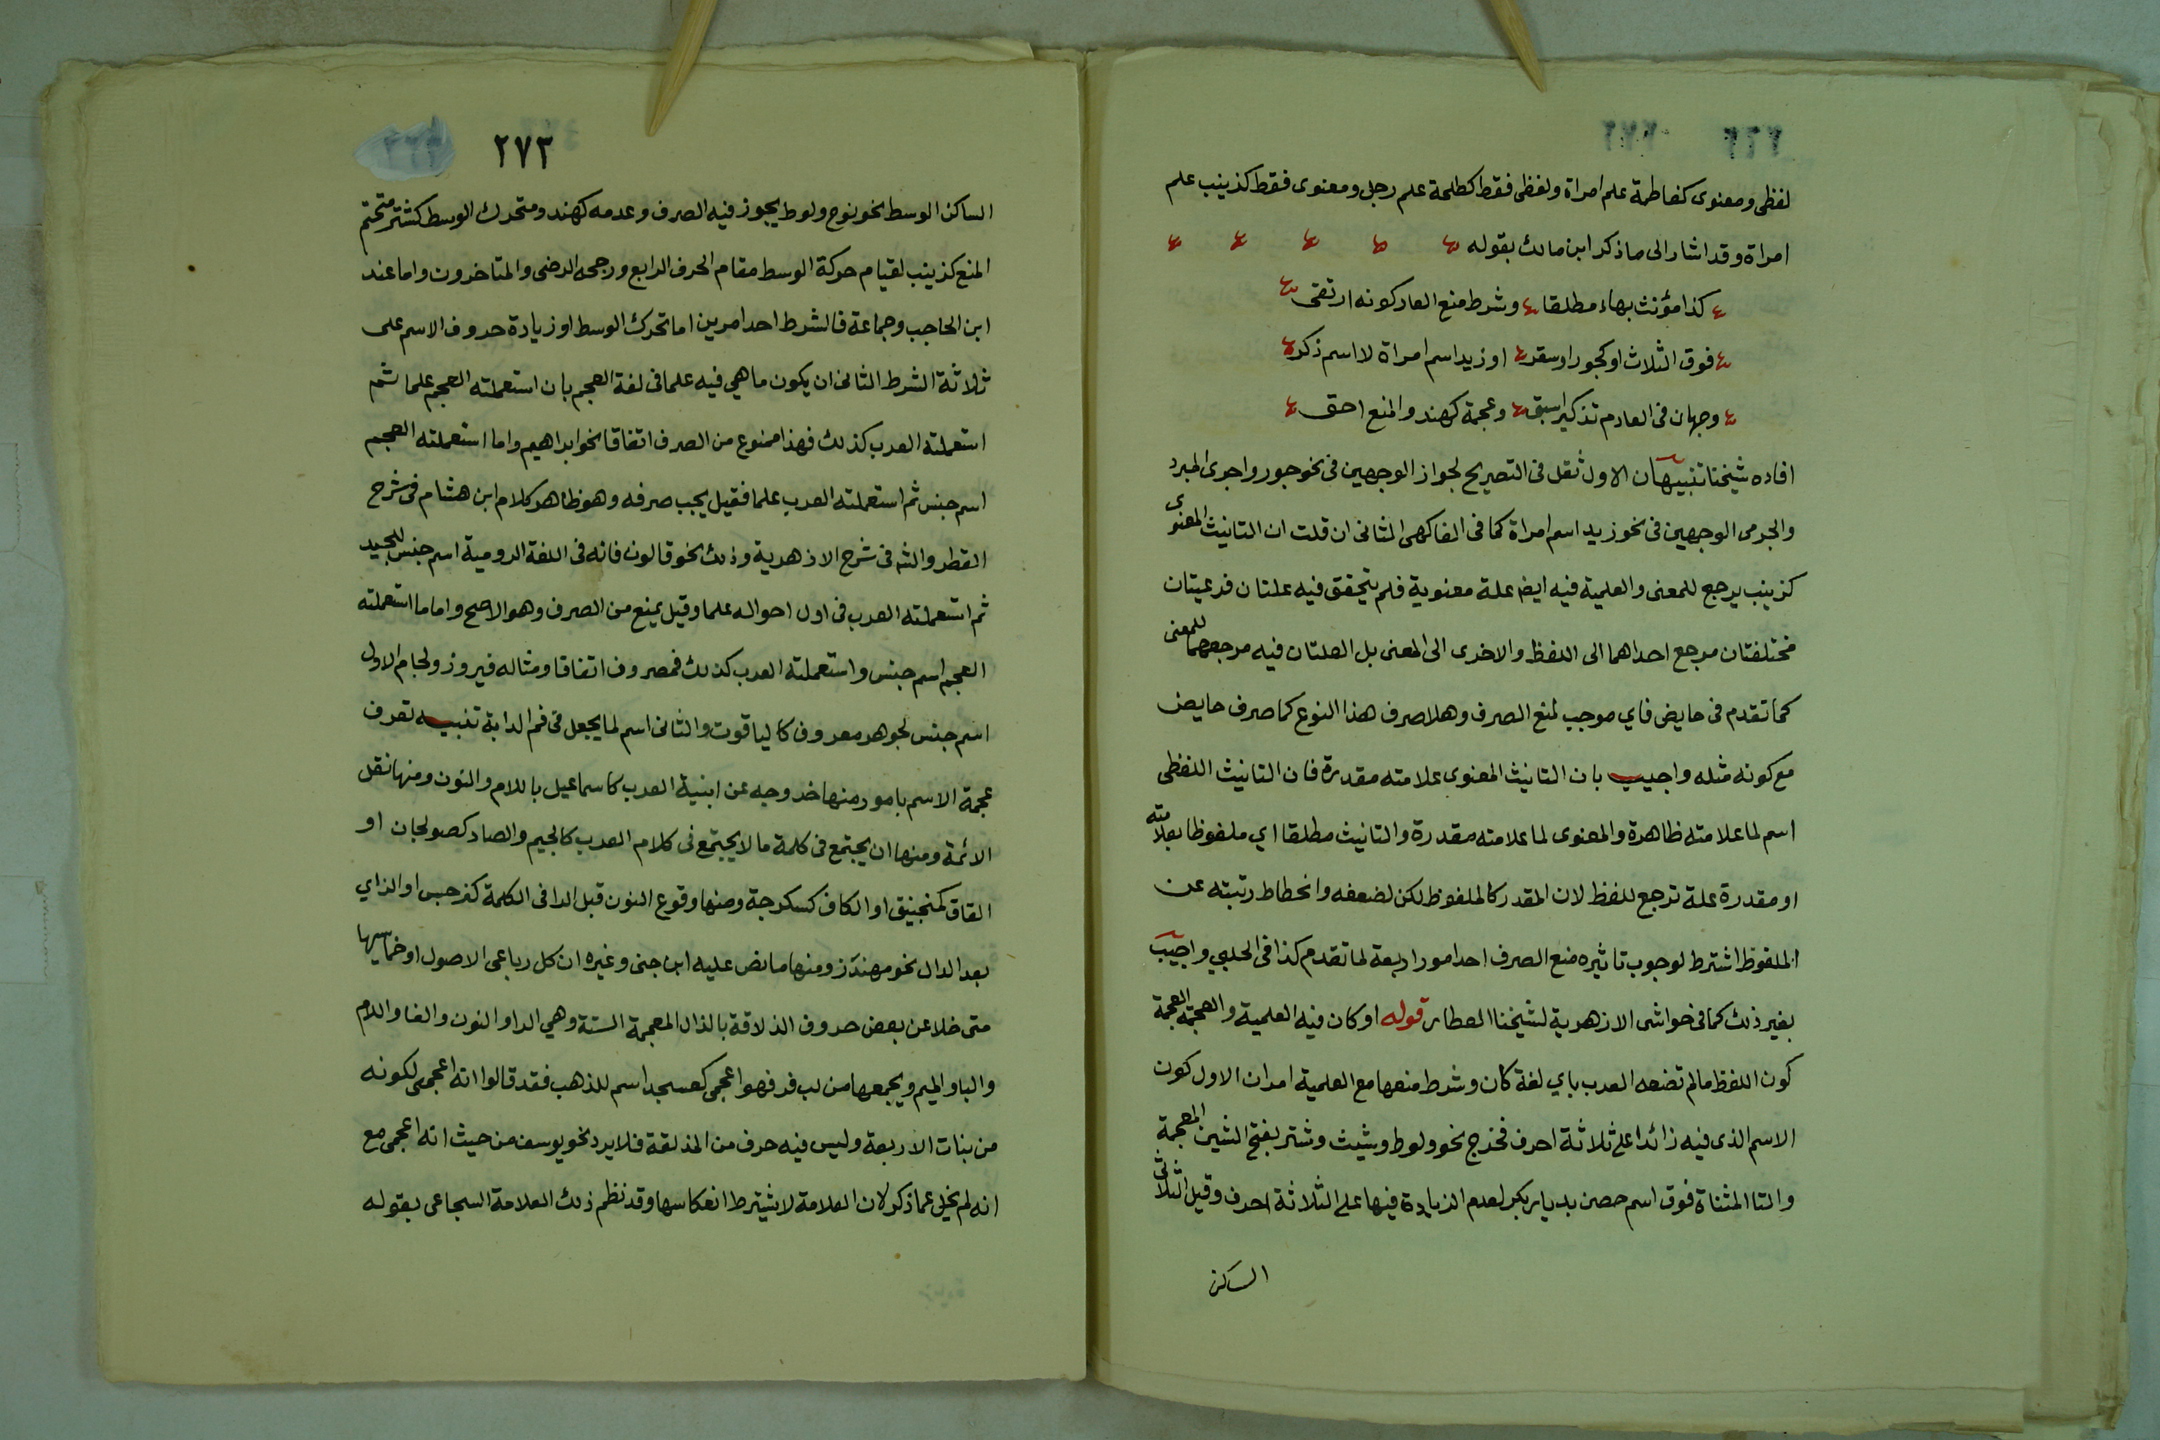 لفظي ومعنوى كفاطمة علم امراة ولفظى فقط كطلحة علم رجل ومعنوى فقط كزينب علم
امراة وقد اشار الى ما ذكر ابن مالك بقوله
كذا مؤنث بهاء مطلقا وشرط منع العار كونه ارتقى
فوق الثلاث او كجور او سقر او زيد اسم امراة لا اسم ذكر
وجهان فى العادم تذكيرا سبق وعجمة كهند والمنع احق
افاده شيخنا تنبيهان الاول نقل فى التصريح لجواز الوجهين فى نحو جور واجرى المبرد
والجرمى الوجهين فى نحو زيد اسم امراة كما فى الفاكهى الثانى ان قلت ان التانيث المعنوى
كزينب يرجع للمعنى والعلمية فيه ايض علة معنوية فلم يتحقق فيه علتان فرعيتان
مختلفتان مرجع احداهما الى اللفظ والاخرى الى المعنى بل العلتان فيه مرجعهما للمعنى
كما تقدم فى حايض فاي موجب لمنع الصرف وهلا صرف هذا النوع كما صرف حايض
مع كونه مثله واجيب بان التانيث المعنوى علامته مقدرة فان التانيث اللفظى
اسم لما علامته ظاهرة والمعنوى لما علامته مقدرة والتانيث مطلقا اي ملفوظا بعلامته
او مقدرة علة ترجع للفظ لان المقدر كالملفوظ لكن لضعفه وانحطاط رتبته عن
الملفوظ اشترط لوجوب تاثيره منع الصرف احد امور اربعة لما تقدم كذا فى الحلبي واجيب
بغير ذلك كما فى حواشى الازهرية لشيخنا العطار قوله او كان فيه العلمية والعجمة العجمة
كون اللفظ مما لم تضعه العرب باي لغة كان وشرط منعها مع العلمية امران الاول كون
الاسم الذى فيه زائدا على ثلاثة احرف فخرج نحو ولوط وشيث وشتر بفتح الشين المعجمة
والتا المثناة فوق اسم حصن بديار بكر لعدم الزيادة فيها على الثلاثة احرف وقيل الثلاثى
الساكن
٢٧٣
الساكن الوسط نحو نوح ولوط يجوز فيه الصرف وعدمه كهند ومتحرك الوسط كشتر متحتم
المنع كزينب لقيام حركة الوسط مقام الحرف الرابع ورجحه الرضى والمتاخرون واما عند
ابن الحاجب وجماعة فالشرط احد امرين اما تحرك الوسط او زيادة حروف الاسم على
ثلاثة الشرط الثانى ان يكون ما هي فيه علما فى لغة العجم بان استعملته العجم علما ثم
استعملته العرب كذلك فهذا ممنوع من الصرف اتفاقا نحو ابراهيم واما استعملته العجم
اسم جنس ثم استعملته العرب علما فقيل يجب صرفه وهو ظاهر كلام ابن هشام فى شرح
القطر والش فى شرح الازهرية وذلك نحو قالون فانه فى اللغة الرومية اسم جنس للجيد
ثم استعملته العرب فى اول احواله علما وقيل يمنع من الصرف وهو الاصح واما ما استعملته
العجم اسم جنس واستعملته العرب كذلك فمصروف اتفاقا ومثاله فيروز ولجام الاول
اسم جنس لجوهر معروف كالياقوت والثانى اسم لما يجعل فى فم الدابة تنبيه تعرف
عجمة الاسم بامور منها خروجه عن ابنية العرب كاسماعيل باللام والنون ومنها نقل
الائمة ومنها ان يجتمع فى كلمة ما لا يجتمع فى كلام العرب كالجيم والصاد كصولجان او
القاف كمنجنيق او الكاف كسكرجة ومنها وقوع النون قبل الرا فى الكلمة كنرجس او الزاي
بعد الدال نحو مهندز ومنها ما نص عليه ابن جنى وغيره ان كل رباعى الاصول او خماسيها
متى خلا عن بعض حروف الذلاقة بالذال المعجمة الستة وهي الرا والنون والفا واللام
والبا والميم ويجمعها من لب فر فهو اعجمى كعسجد اسم للذهب فقد قالوا انه اعجمى لكونه
من بنات الاربعة وليس فيه حرف من المذلقة فلا يرد نحو يوسف من حيث انه اعجمى مع
انه لم يخل عما ذكر لان العلامة لا يشترط انعكاسها وقد نظم ذلك العلامة السجاعى بقوله